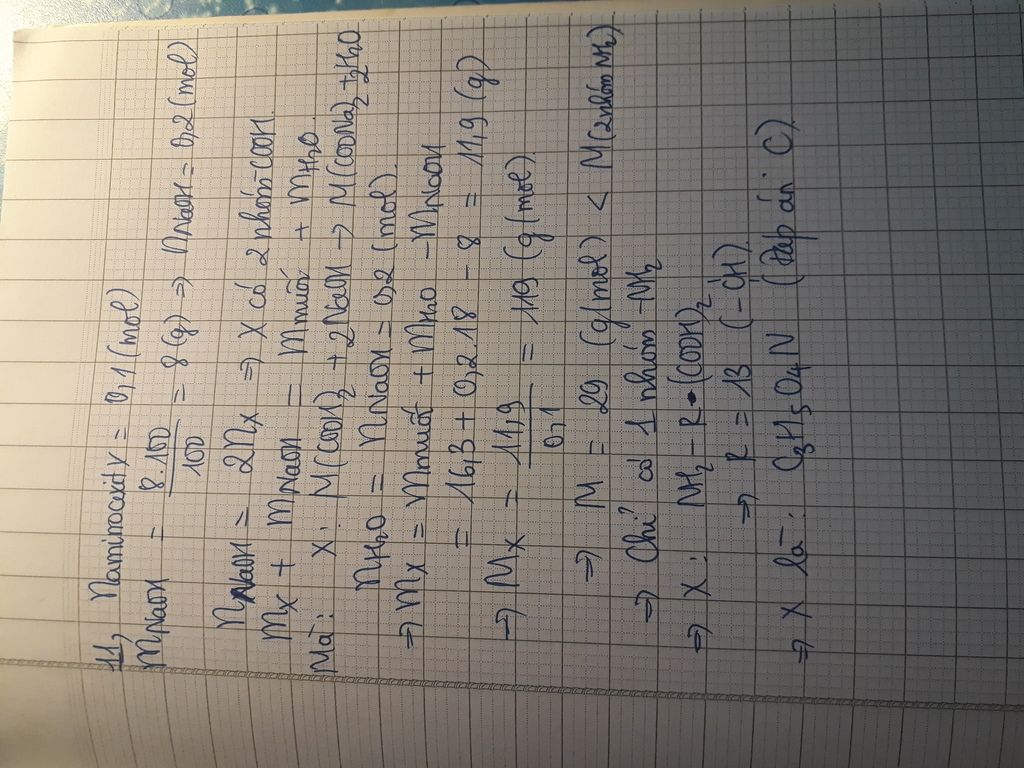 11, n aminoaxit X = 0,1 (mol)
mNaOH = 8.100/100 = 8 (g) => nNaOH = 0,2 (mol)
nNaOH = 2nX => X có 2 nhóm -COOH.
mX + mNaOH = mmuối + mH2O.
Mà: X: M(COOH)2 + 2NaOH -> M(COONa)2 + 2H2O
nH2O = nNaOH = 0,2 (mol).
=> mX = mmuối + mH2O - mNaOH
= 16,3 + 0,2.18 - 8 = 11,9 (g)
=> MX = 11,9/0,1 = 119 (g/mol).
=> M = 29 (g/mol) < M(2 nhóm NH2)
=> Chỉ có 1 nhóm -NH2
=> X: NH2 - R - (COOH)2
=> R = 13 (-CH)
=> X là: C3H5O4N (Đáp án C)